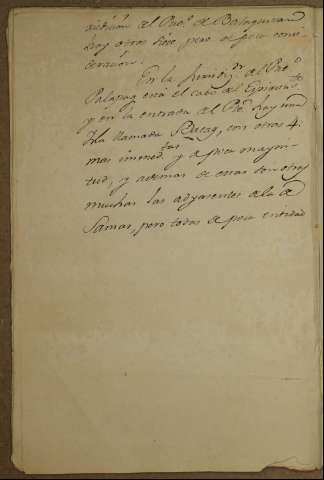 risdicion del Pueᵒ de Balangiran
hay otras siete, pero de poca consi-
deracion.
En la Jurisdigⁿ del Pueᵒ
Palapag está el cabo del Espiguᵗᵒ
y en la entrada del Pᵗᵒ hay una
Isla llamada Batag, con otras 4.
mas inmedᵗᵃˢ y de poca magni-
tud, y ademas de estas son otras
muchas las adyacentes a la de
Samar, pero todas de poca entidad